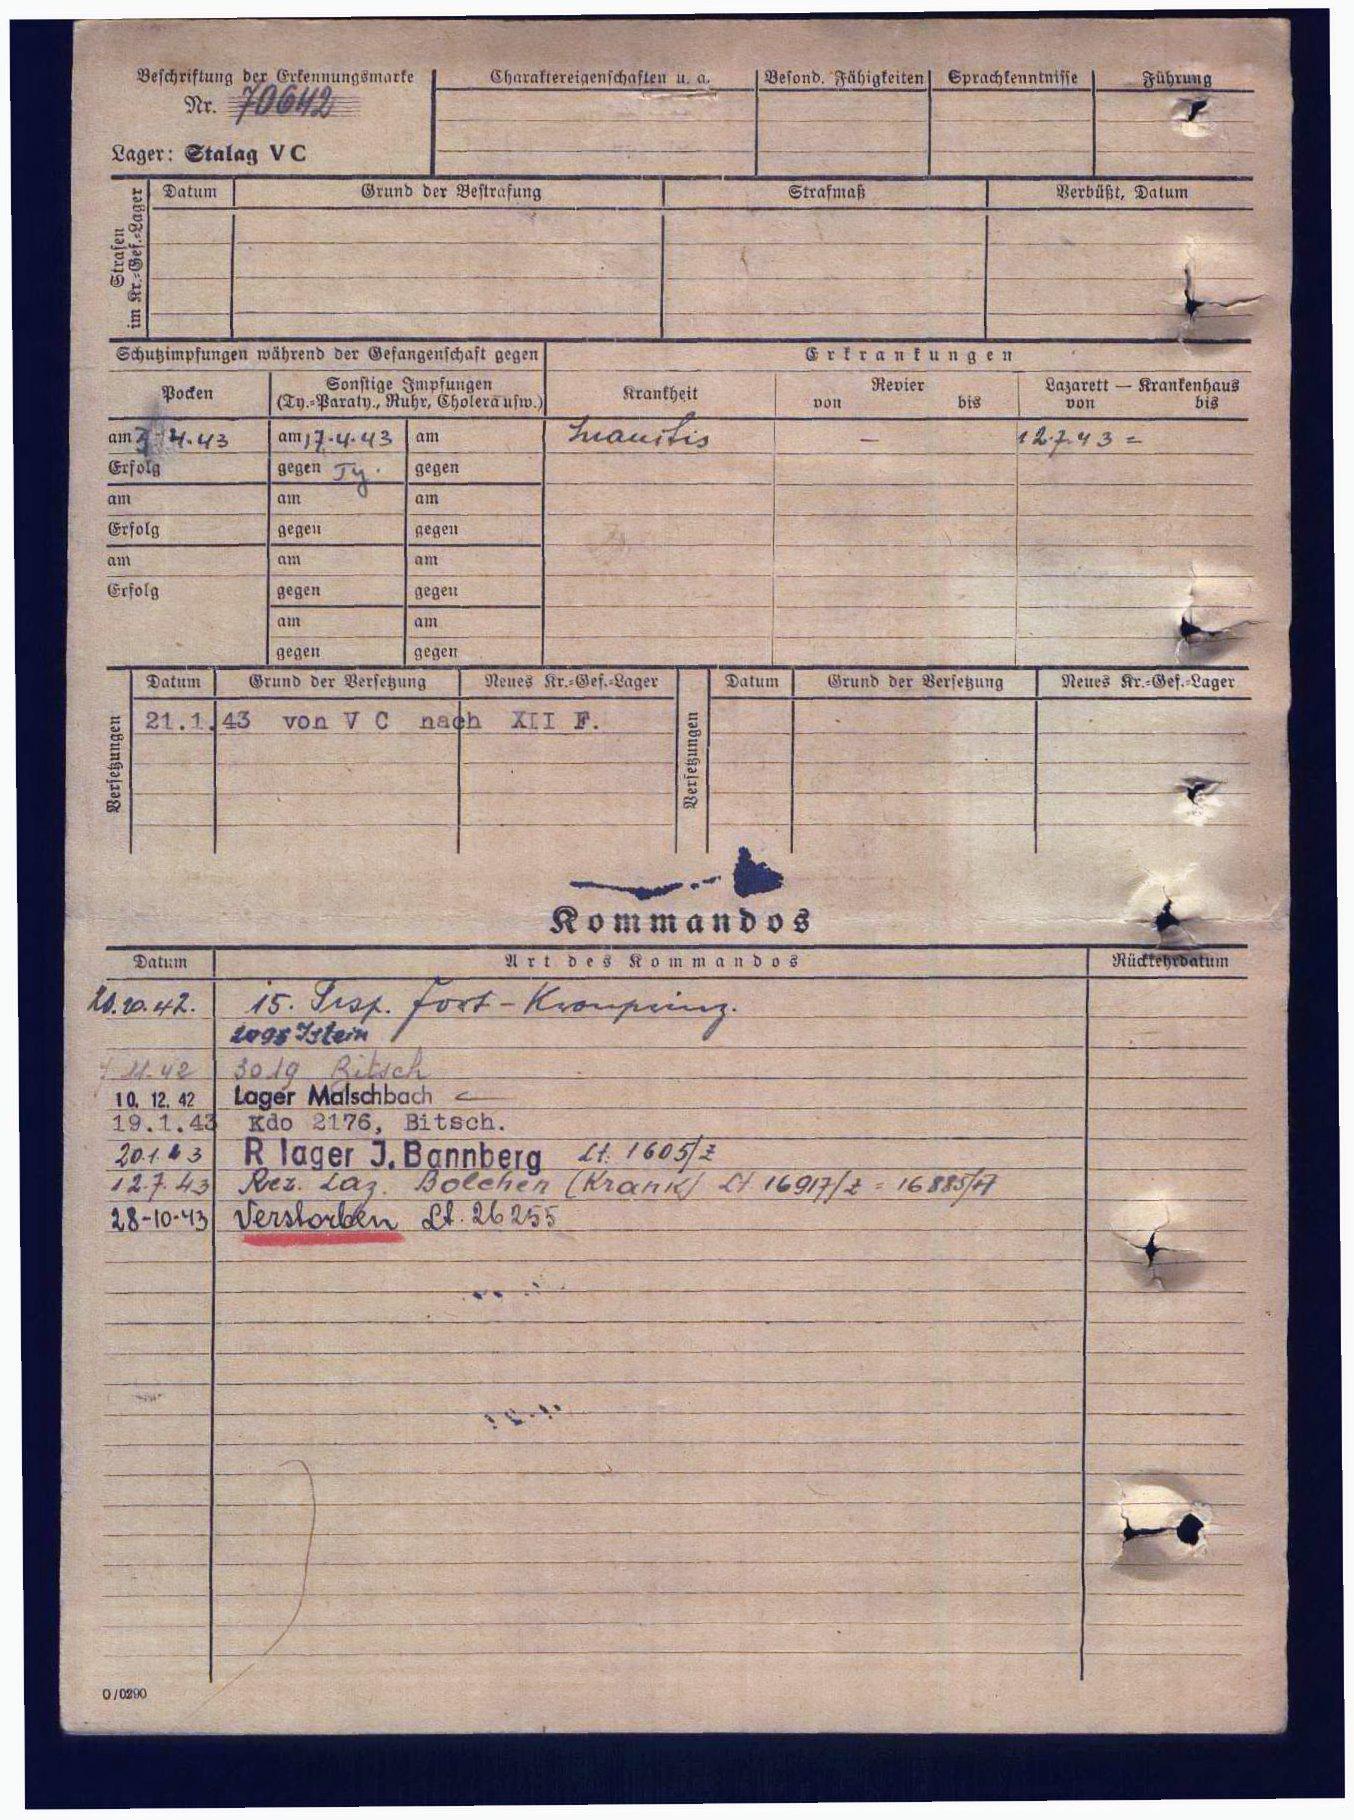 Beschriftung der Erkennungsmarke
Nr. 70642
Lager: Stalag V C
Charaktereigenschaften u. a.
Besond. Fähigkeiten
Sprachkenntnisse
Führung
Strafen
im Kr.=Gef.=Lager
Datum
Grund der Bestrafung
Strafmaß
Verbüßt, Datum
Schutzimpfungen während der Gefangenschaft gegen
Erkrankungen
Pocken
Sonstige Impfungen
(Ty.=Paraty., Ruhr, Cholera usw.)
Krankheit
Revier
von bis
Lazarett — Krankenhaus
von bis
am 4.43 am 17.4.43 am — 12.7.43 =
Erfolg gegen Ty. gegen
am am am
Erfolg gegen gegen
am am am
Erfolg gegen gegen
am am
gegen gegen
Versetzungen
Datum Grund der Versetzung Neues Kr.=Gef.=Lager
Versetzungen
Datum Grund der Versetzung Neues Kr.=Gef.=Lager
21.1.43 von V C nach XII F.
Kommandos
Datum Art des Kommandos Rückkehrdatum
20.10.42. 15. Trsp. Fort - Kronprinz.
2098 Istein
11.42 3019 Bitsch
10. 12. 42 Lager Malschbach
19.1.43 Kdo 2176, Bitsch.
20.1.43 R lager J. Bannberg Lt. 1605/Z
12.7.43 Res. Laz. Bolchen (Krank) Lt 16917/Z = 16885/A
28-10-43 Verstorben Lt. 26255
O/0290